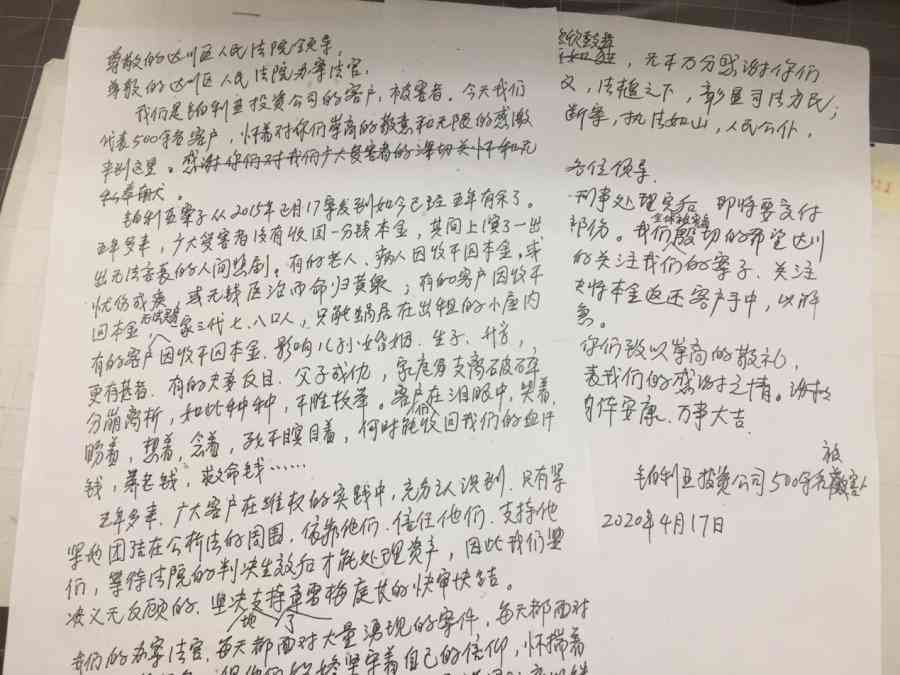 尊敬的达川区人民法院领导,
尊敬的达川区人民法院办案法官,
我们是铂利亚投资公司的客户,被害者。今天我们
代表500余名客户,怀着对你们崇高的敬意和无限的感激
来到这里。感谢你们对我们广大受害者的深切关怀和无
私奉献。
铂利亚案子从2015年月17案发到如今已经五年有余了。
五年多来,广大受害者没有收回一分钱本金,其间上演了一出
出无法容衰的人间悲剧。有的老人、病人因收不回本金,或
忧伤成疾,或无钱医治而命归黄泉;有的客户因收不
回本金,一家三代七、八口人,只能蜗居在出租的小屋内
有的客户因收不回本金、影响儿孙婚姻、生子、升学,
更有甚者、有的夫妻反目、父子成仇,家庭支离破碎
分崩离析,如此种种,不胜枚举。客户在泪眼中,哭着,
盼着,想着,念着,死不瞑目着,何时能收回我们的血汗
钱,养老钱,救命钱……
五年多来、广大客户在维权的实践中,充分认识到、只有紧
紧地团结在公析法的周围、依靠他们、信任他们、支持他
们,等待法院的判决生效后才能处理资产,因此我们坚
决义无反顾的、坚决支持雪梅庭长的快审快结。
我们的办案法官,每天都面对大量涌现的案件,每天都面对
着自己的信仰,怀揣着
,无不万分感谢你们
义,法槌之下,彰显司法为民;
断案,执法如山,人民公仆,
各位领导,
刑事处理完后,即将要交付
部份。我们殷切的希望达川
的关注我们的案子、关注
将本金返还客户手中,以解
急。
你们致以崇高的敬礼,
表我们的感谢之情。
身体安康、万事大吉
铂利亚投资公司500余名被害人
2020年4月17日